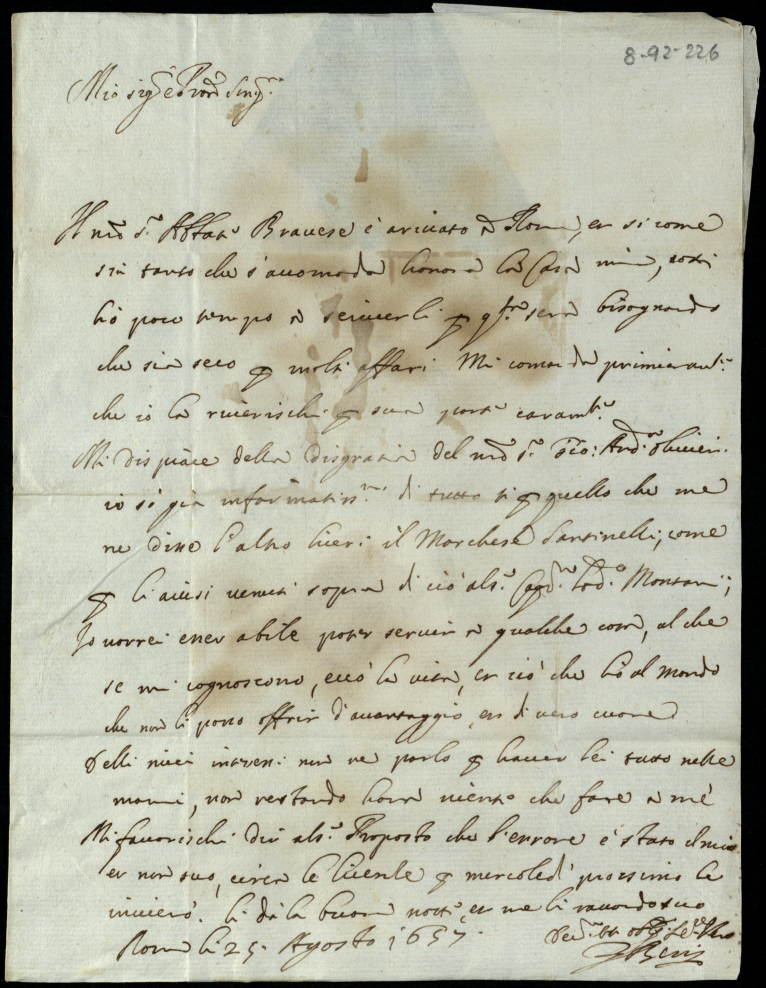 8-92-226
Mio sig.re e Pron Sing.r
Il mio s.r Abbat.e Bravese è arivato à Roma, et si come
sin tanto che s'accomoda honora la Casa mia, così
hò poco tempo à scriverli p q.sta sera bisognando
che sia seco p molti affari. Mi comanda primieram.te
che io la riverischi p sua parte caram.te
Mi dispiace della disgratia del mio s.r And.a Olivieri.
io sò già informatiss.mo di tutto si p quello che me
ne disse l'altro hieri il Marchese Santinelli, come
p li avisi venuti sopra di ciò al s.r Cap.n Lod.o Montani;
Io vorrei esser abile poter servir à qualche cosa, al che
se mi cognoscono, eccò la vita, et ciò che hò al mondo
che non li posso offrir d'avantaggio, et di vero cuore
Delli miei interessi non ne parlo p haver lei tutto nelle
mani, non restando hora niente che fare à mè
Mi favorischi dir al s.r Proposto che l'errore è stato il mio
et non suo, circa le licenze p mercoledì prossimo le
invierò. li dò la buona notte, et me li raccordo suo
Roma li 25. Agosto 1657.